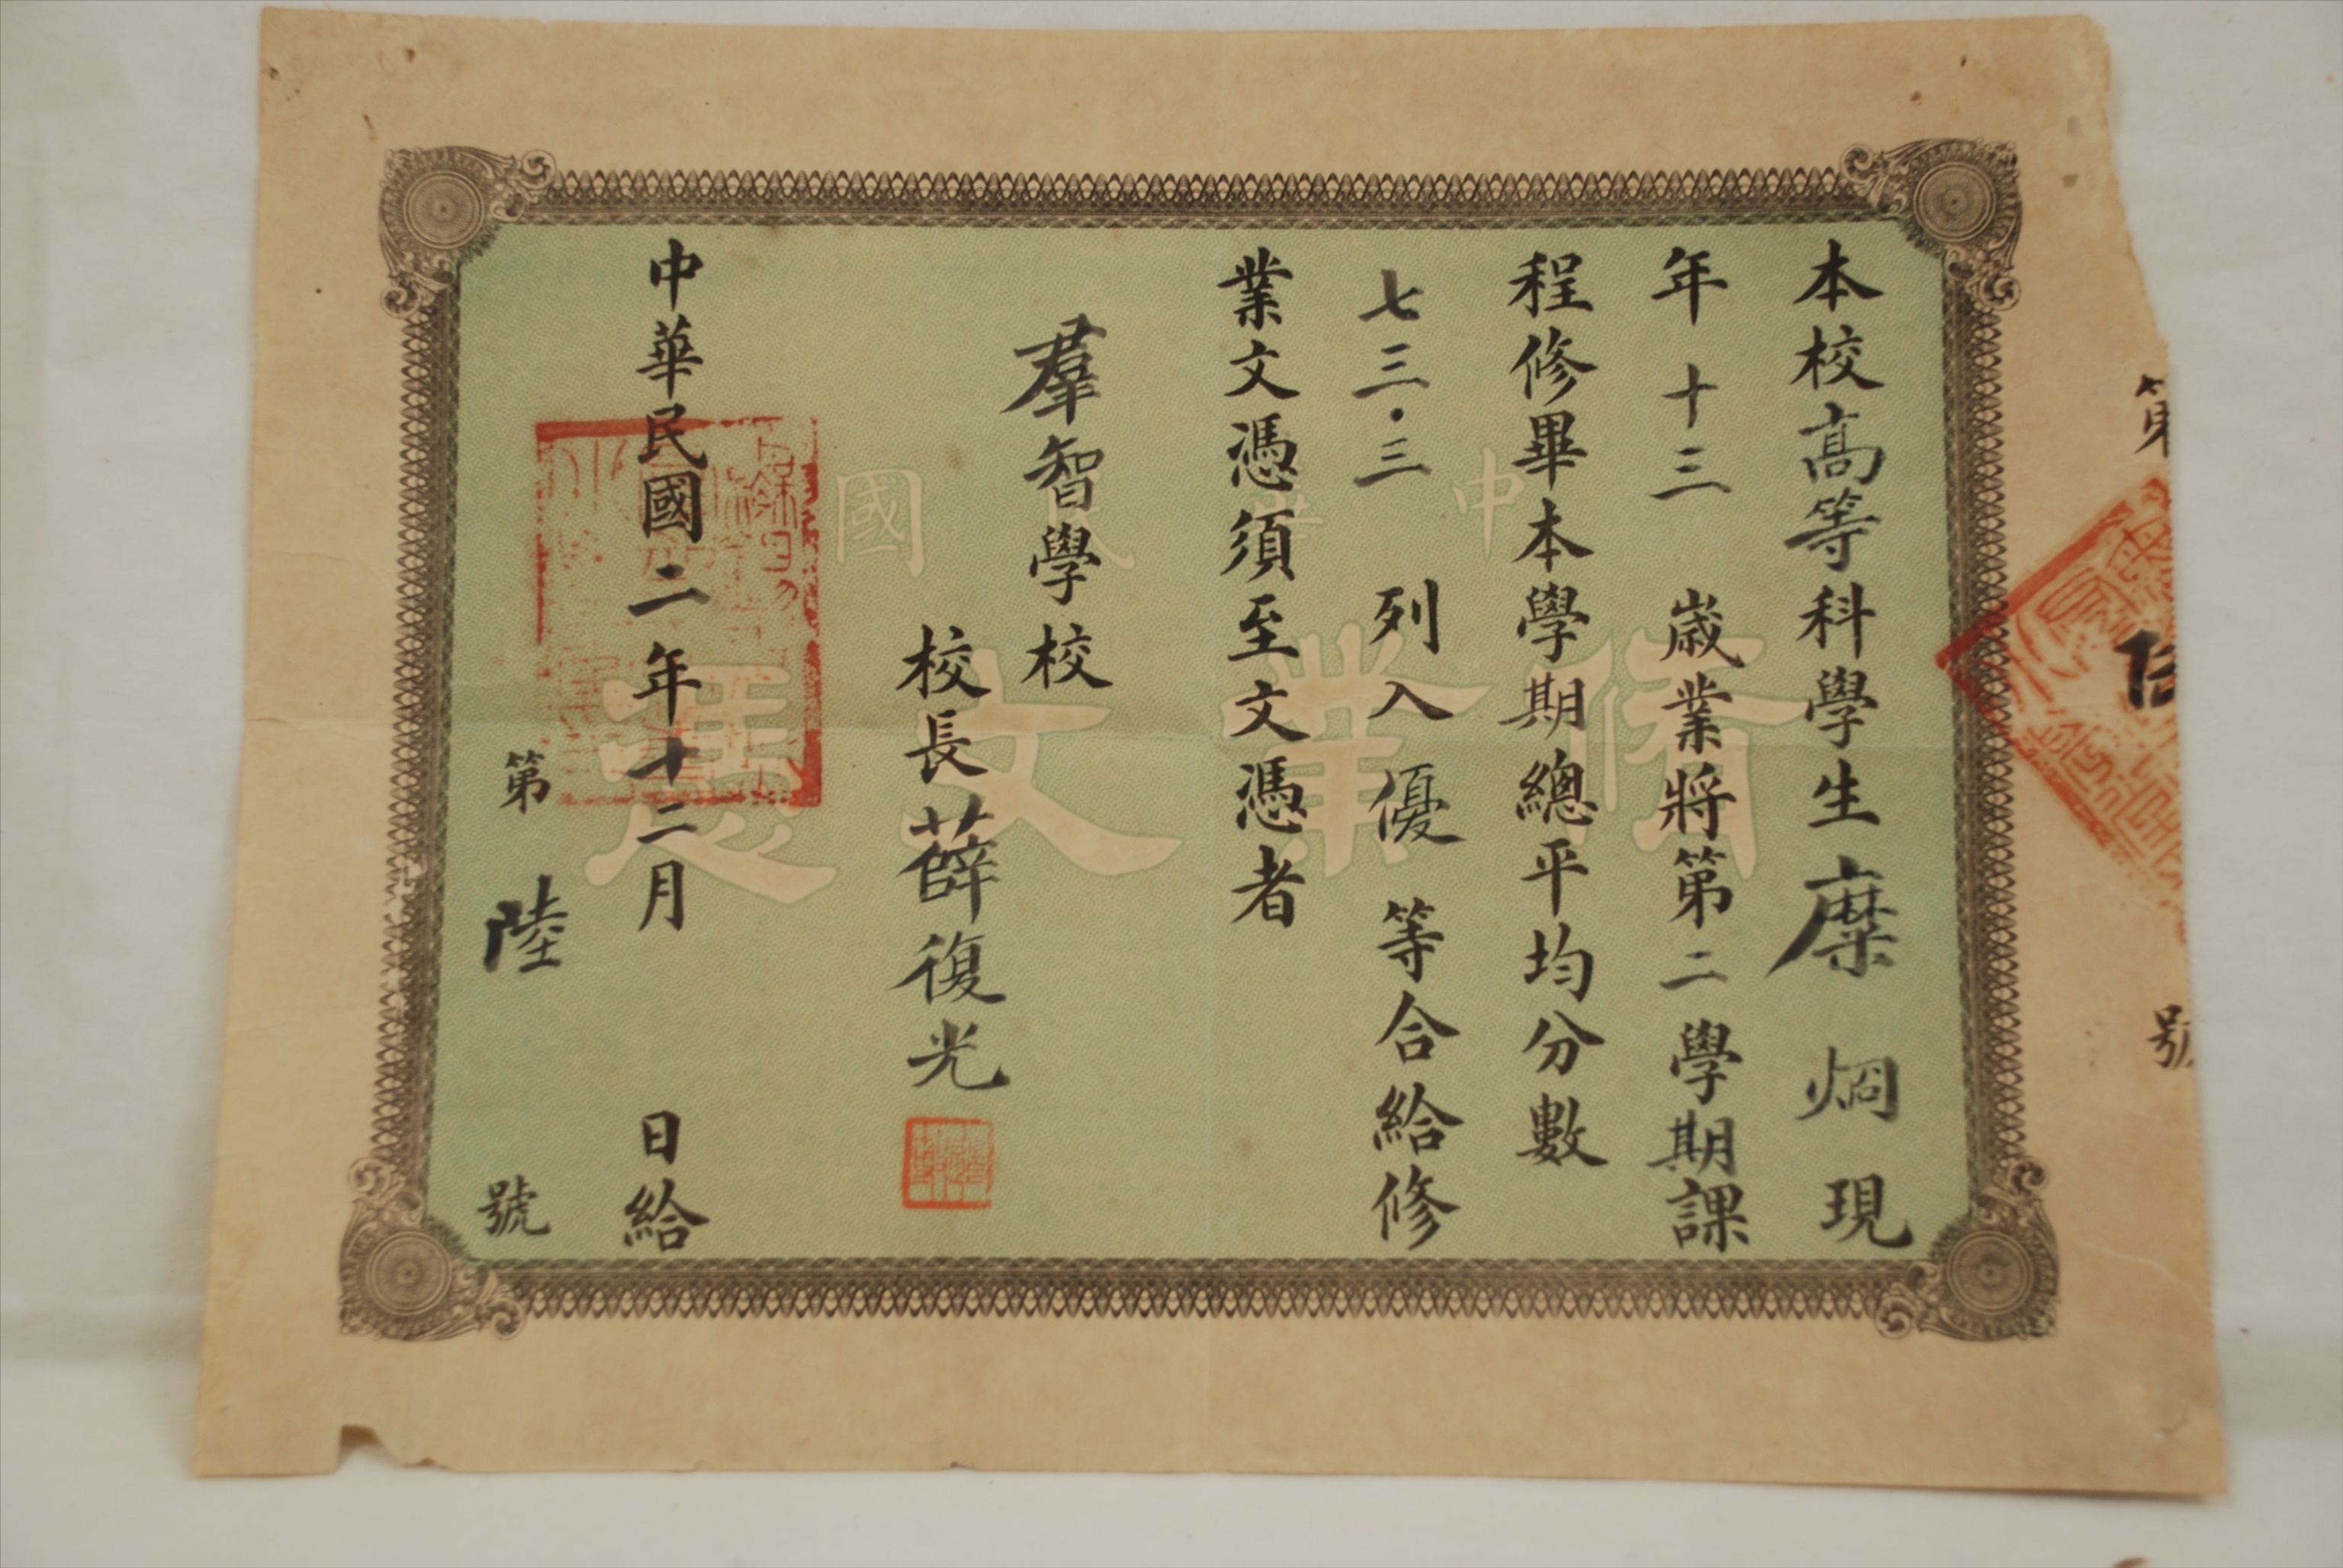 第 號
本校高等科學生糜烱現
年十三歲業將第二學期課
程修畢本學期總平均分數
七三·三列入優等合給修
業文憑須至文憑者
羣智學校
校長薛復光
中華民國二年十二月 日給
第陸號
中華民國
修業文憑